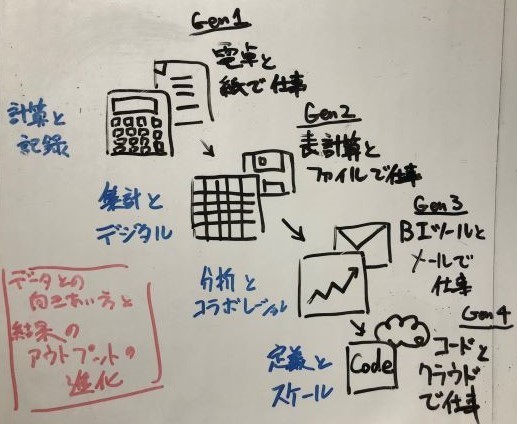 Gen1
電卓と
紙で仕事
計算と
記録
Gen2
表計算と
ファイルで仕事
集計と
デジタル
Gen3
BIツールと
メールで
仕事
分析と
コラボレーション
Gen4
コードと
クラウド
で仕事
Code
定義と
スケール
データとの
向きあい方と
結果の
アウトプットの
進化